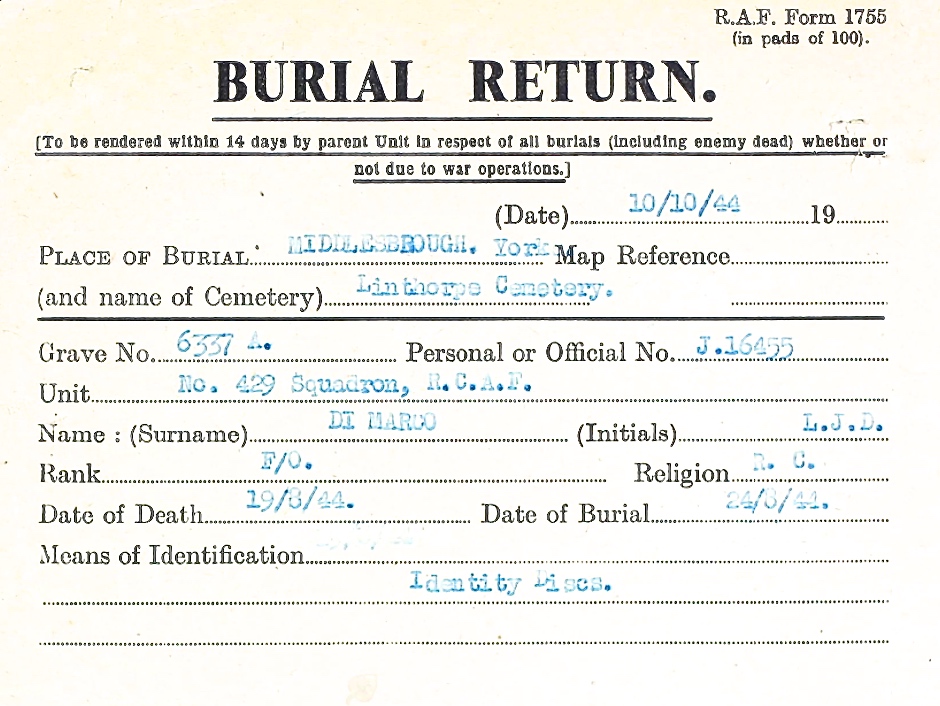 R.A.F. Form 1755
(in pads of 100).
BURIAL RETURN.
[To be rendered within 14 days by parent Unit in respect of all burials (including enemy dead) whether or
not due to war operations.]
(Date) 10/10/44 19
PLACE OF BURIAL MIDDLESBROUGH. York Map Reference
(and name of Cemetery) Linthorpe Cemetery.
Grave No. 6337 A. Personal or Official No. J.16455
Unit No. 429 Squadron, R.C.A.F.
Name : (Surname) DI MARCO (Initials) L.J.D.
Rank F/O. Religion R. C.
Date of Death 19/8/44. Date of Burial 24/8/44.
Means of Identification
Identity Discs.